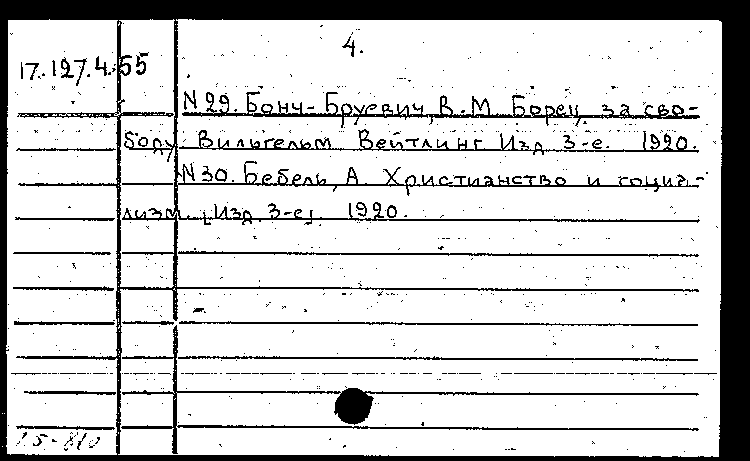 4.
17.127.4.55
N 29. Бонч-Бруевич, В. М. Борец за сво-
боду Вильгельм Вейтлинг Изд 3-е. 1920.
N 30. Бебель, А. Христианство и социа-
лизм. [Изд. 3-е]. 1920.
15-810